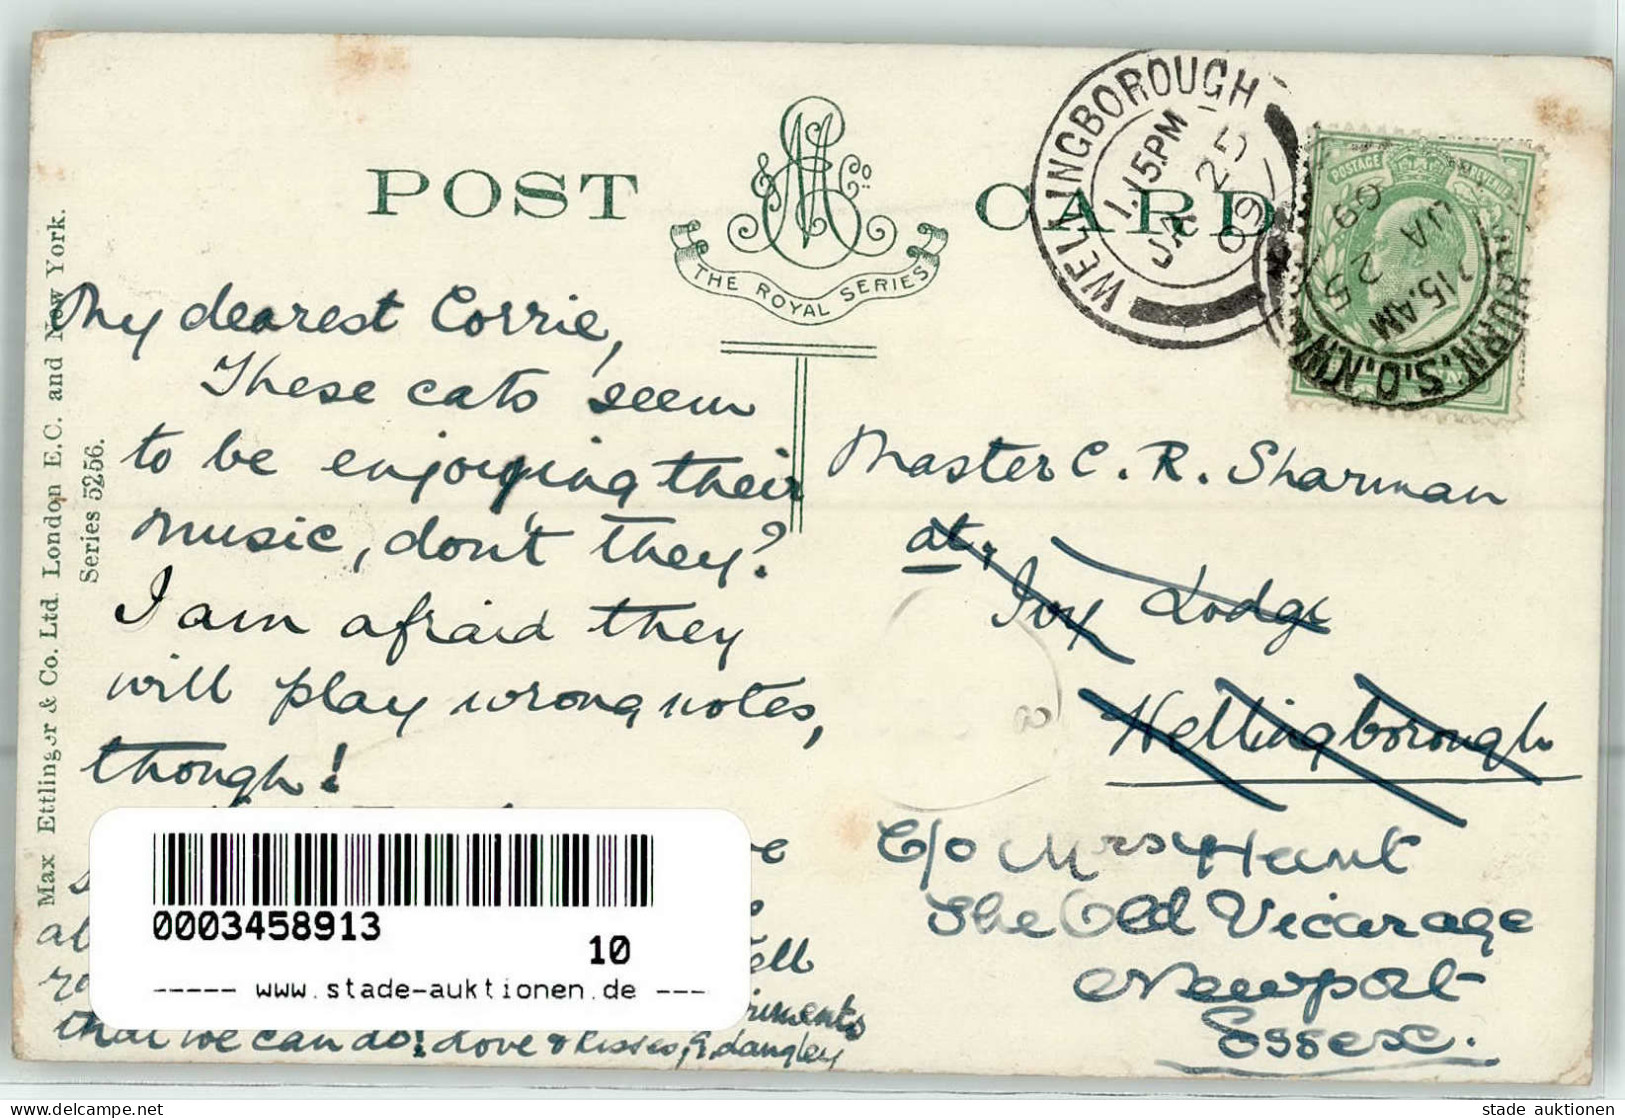 POST CARD
& Co.
THE ROYAL SERIES
WELLINGBOROUGH
1.15PM
JA 25
09
POSTAGE REVENUE
15.AM
JA 25
09
S.O. N.W.
Max Ettlinger & Co. Ltd. London E.C. and New York.
Series 5256.
My dearest Corrie,
These cats seem
to be enjoying their
music, don't they?
I am afraid they
will play wrong notes,
though!
that we can do! Love & kisses,
Master C. R. Sharman
at,
Ivy Lodge
Wellingborough
C/o Mrs Hunt
The Old Vicarage
Newport
Essex.
0003458913
10
----- www.stade-auktionen.de ---
www.stadeauktionen.com
stade auktionen